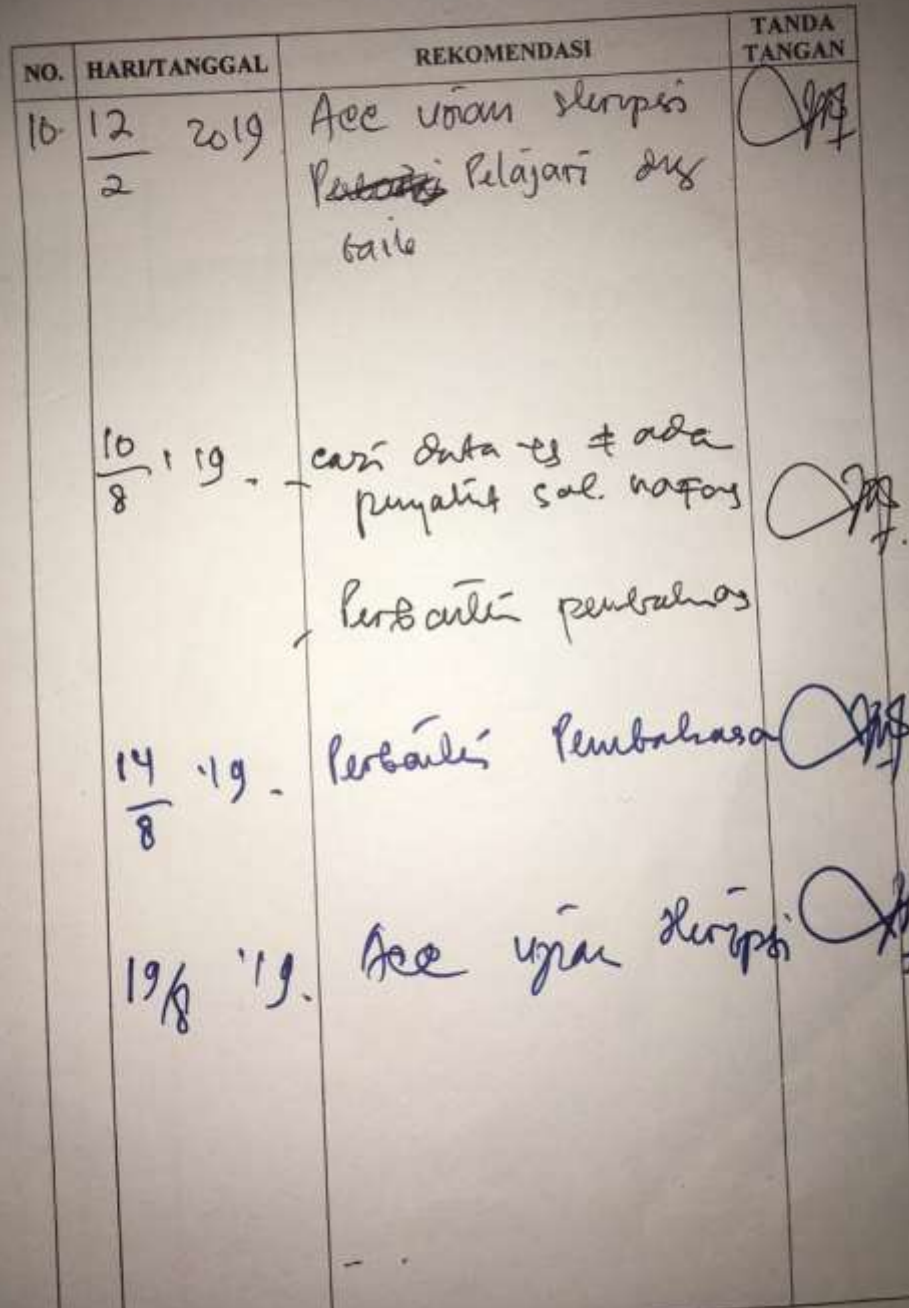 NO. HARI/TANGGAL REKOMENDASI TANDA TANGAN
10. 12/2 2019 Acc ujian skripsi
Pelajari dg
baik
10/8 '19. - cari data yg ≠ ada
penyakit sal. nafas
- Perbaiki pembahas
14/8 '19. Perbaiki Pembahasa
19/8 '19. Acc ujian skripsi